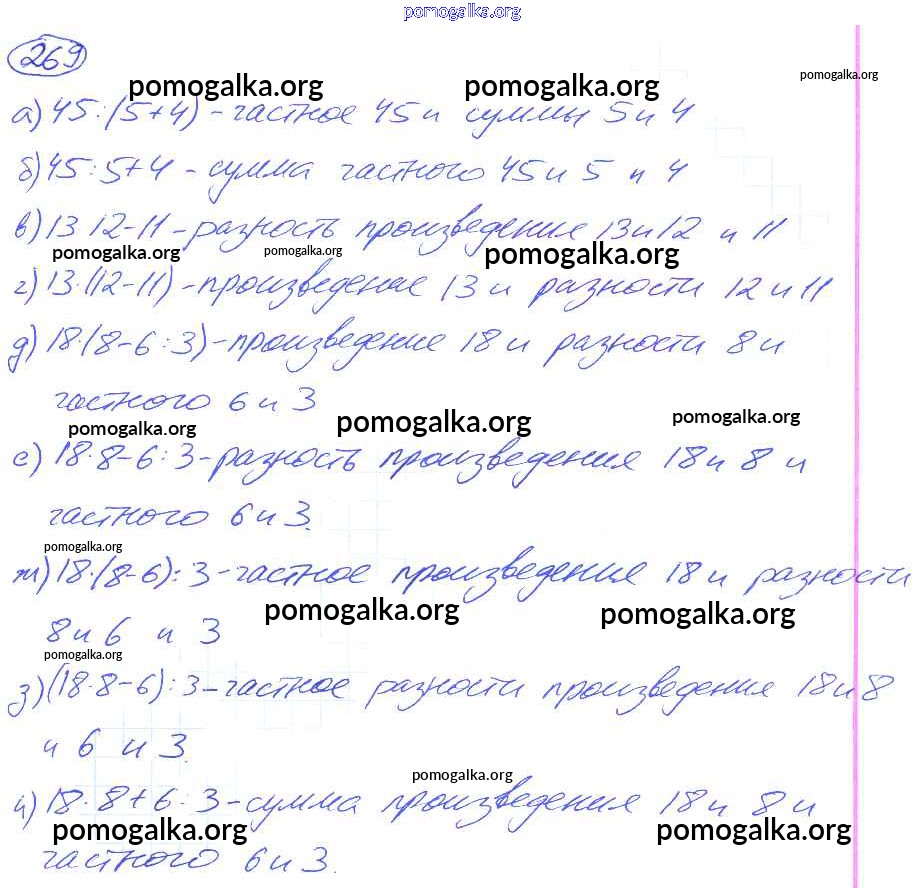 pomogalka.org
269
pomogalka.org pomogalka.org pomogalka.org
а) 45:(5+4) - частное 45 и суммы 5 и 4
б) 45:5+4 - сумма частного 45 и 5 и 4
в) 13 12-11 - разность произведения 13 и 12 и 11
pomogalka.org pomogalka.org pomogalka.org
г) 13·(12-11) - произведение 13 и разности 12 и 11
д) 18·(8-6:3) - произведение 18 и разности 8 и
частного 6 и 3
pomogalka.org pomogalka.org pomogalka.org
е) 18·8-6:3 - разность произведения 18 и 8 и
частного 6 и 3.
pomogalka.org
ж) 18·(8-6):3 - частное произведения 18 и разности
pomogalka.org pomogalka.org
8 и 6 и 3
pomogalka.org
з) (18·8-6):3 - частное разности произведения 18 и 8
и 6 и 3.
pomogalka.org
и) 18·8+6:3 - сумма произведения 18 и 8 и
pomogalka.org pomogalka.org
частного 6 и 3.